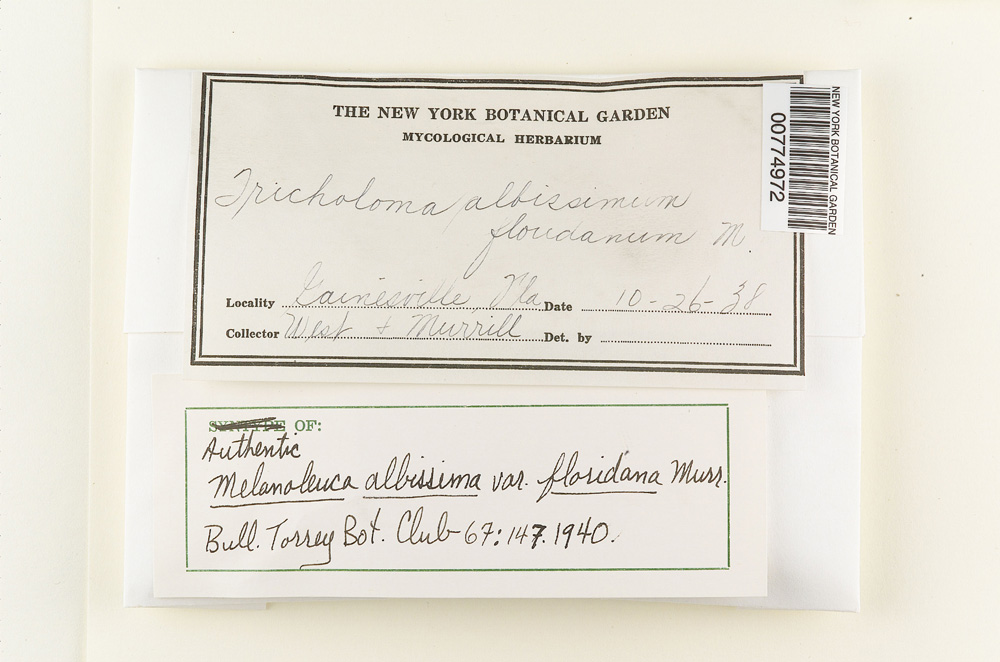 THE NEW YORK BOTANICAL GARDEN
MYCOLOGICAL HERBARIUM
Tricholoma albissimum
floridanum M.
Locality Gainesville Fla Date 10-26-38
Collector West & Murrill Det. by
NEW YORK BOTANICAL GARDEN
00774972
SYNTYPE OF:
Authentic
Melanoleuca albissima var. floridana Murr.
Bull. Torrey Bot. Club 67:147. 1940.